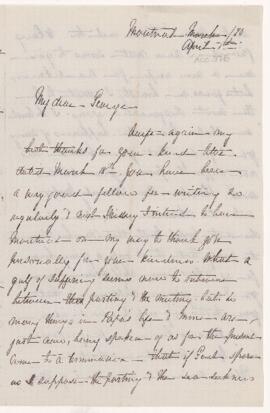 Montreal March /80
April 7th
My dear George
Accept again my
best thanks for your kind letter
dated March 18th. you have been
a very good fellow for writing so
regularly & next Thursday I intend to leave
Montreal on my way to thank you
personally for your kindness What a
gulf of suffering seems now to intervene
between the parting & the meeting but so
many things in Papa's life & mine are
just now, being spoken of as for the present
come to a termination that if God spares
us I suppose the parting & the sea sickness